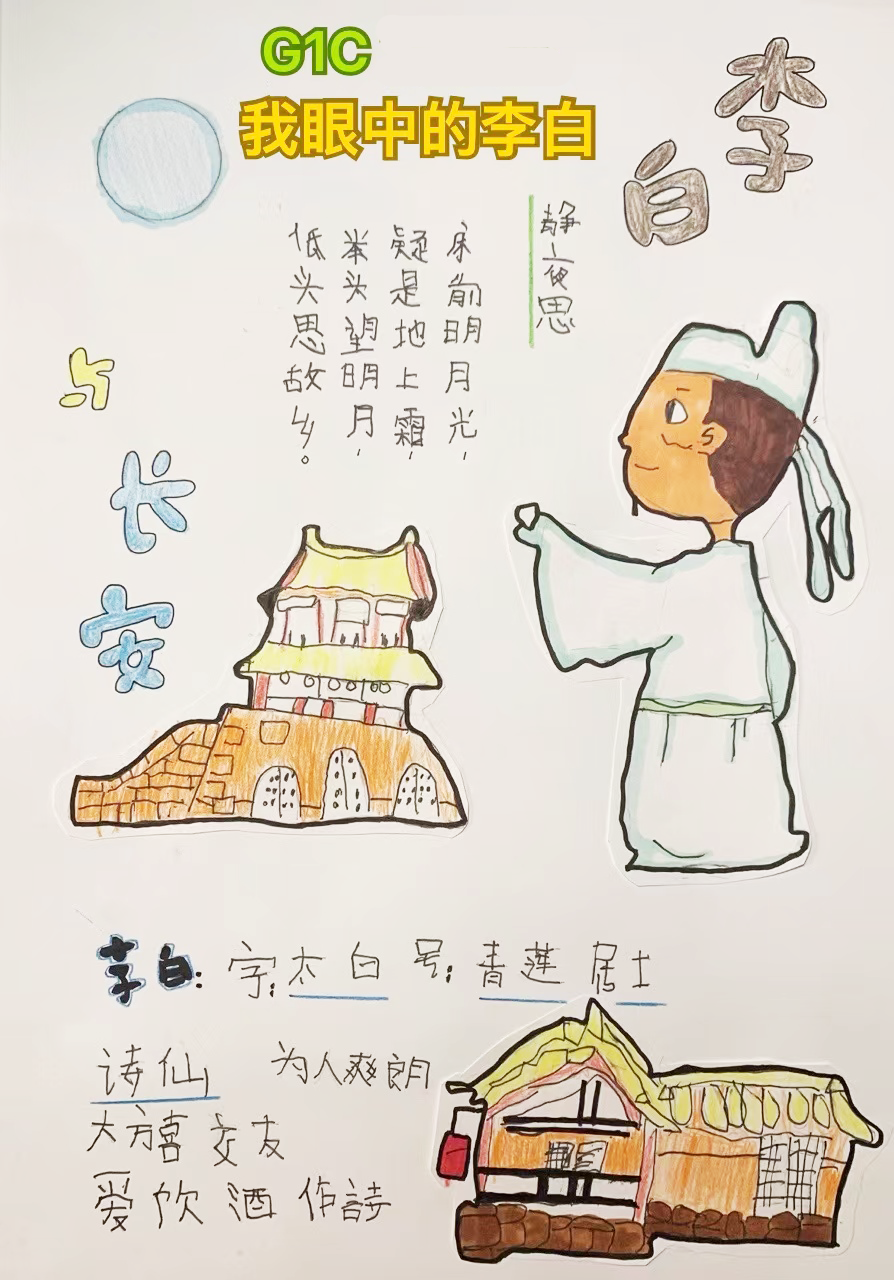 G1C
我眼中的李白
李白
与
长安
静夜思
床前明月光，
疑是地上霜，
举头望明月，
低头思故乡。
李白：字：太白 号：青莲居士
诗仙 为人爽朗
大方喜交友
爱饮酒 作詩